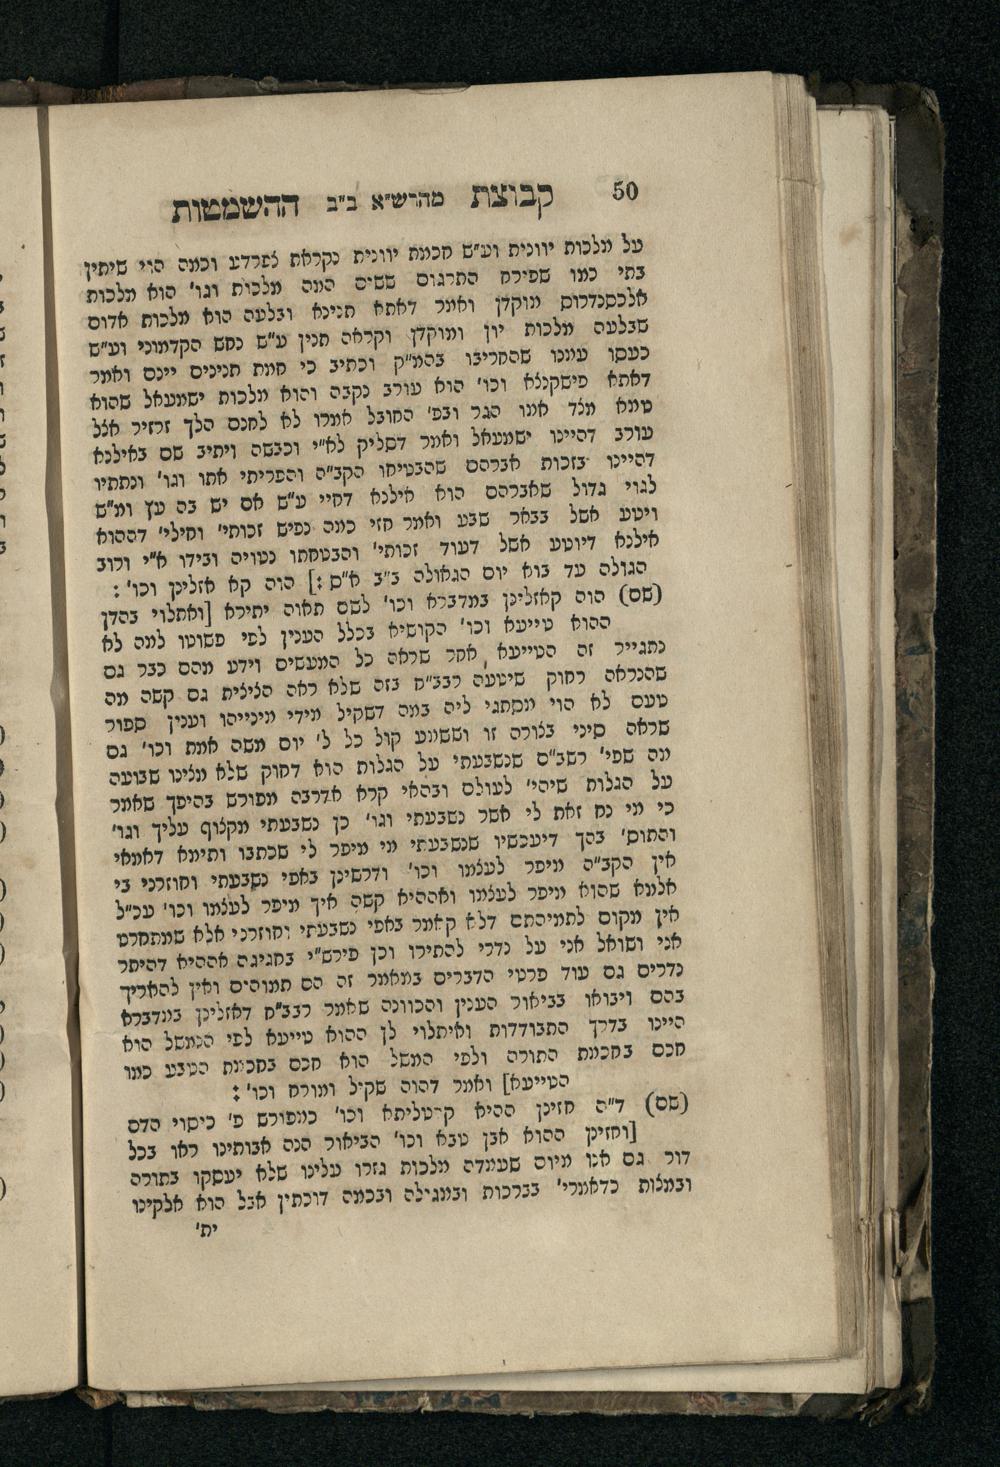 50 קבוצת מהרש״א ב״ב ההשמטות
על מלכות יוונית וע״ש חכמת יוונית נקראת צפרדע וכמה הוי שיתין
בתי כמו שפירש התרגום ששים המה מלכות וגו' הוא מלכות
אלכסנדרוס מוקדן ואמר דאתא תנינא ובלעה הוא מלכות אדום
שבלעה מלכות יון ומוקדן וקראה תנין ע״ש נחש הקדמוני וע״ש
כעסו עמנו שהחריבו בהמ״ק וכתיב כי חמת תנינים יינם ואמר
דאתא פישקנצא וכו' הוא עורב נקבה והוא מלכות ישמעאל שהוא
טמא מצד אמו הגר ובפ' החובל אמרו לא לחנם הלך זרזיר אצל
עורב דהיינו ישמעאל ואמר דסליק לא״י וכבשה ויתיב שם באילנא
דהיינו בזכות אברהם שהבטיחו הקב״ה והפריתי אתו וגו' ונתתיו
לגוי גדול שאברהם הוא אילנא דחיי ע״ש אם יש בה עץ ומ״ש
ויטע אשל בבאר שבע ואמר חזי כמה נפיש זכותי' וחילי' דההוא
אילנא דיוטע אשל דעוד זכותי' והבטחתו נטויה ובידו א״י ורוב
הגולה עד בוא יום הגאולה ב״ב א״ס :] הוה קא אזלינן וכו' :
(שם) הוה קאזלינן במדברא וכו' לשם תאוה יתירא [ואתלוי בהדן
ההוא טייעא וכו' הקושיא בכלל הענין לפי פשוטו למה לא
נתגייר זה הטייעא אחר שראה כל המעשים וידע מהם כבר גם
שהנראה רחוק שיטעה רבב״ח בזה שלא ראה הצלית גם קשה מה
טעם לא הוי מסתגי ליה במה דשקיל מידי מינייהו וענין ספור
שראה סיני בצורה זו וששמע קול כל ל' יום משה אמת וכו' גם
מה שפי' רשב״ם שנשבעתי על הגלות הוא דחוק שלא מצינו שבועה
על הגלות שיהי' לעולם ובהאי קרא אדרבה מפורש בהיפך שאמר
כי מי נח זאת לי אשר נשבעתי וגו' כן נשבעתי מקצוף עליך וגו'
והתוס' בהך דיעכשיו שנשבעתי מי מיפר לי שכתבו ותימא דאמאי
אין הקב״ה מיפר לעצמו וכו' ודרשינן באפי נשבעתי וחוזרני בי
אלמא שהוא מיפר לעצמו ואההיא קשה איך מיפר לעצמו וכו' עכ״ל
אין מקום לתמיהתם דלא קאמר באפי נשבעתי וחוזרני אלא שמתחרט
אני ושואל אני על נדרי להתירו וכן פירש״י בחגיגה אההיא דהיתר
נדרים גם עוד פרטי הדברים במאמר זה הם תמוהים ואין להאריך
בהם ויבואו בביאור הענין והכוונה שאמר רבב״ח דאזלינן במדברא
היינו בדרך התבודדות ואיתלוי לן ההוא טייעא לפי הנמשל הוא
חכם בחכמת התורה ולפי המשל הוא חכם בחכמת הטבע כמו
הטייעא] ואמר דהוה שקיל ומורח וכו' :
(שם) ד״ה חזינן ההיא קרטליתא וכו' כמפורש פ' כיסוי הדם
[וחזינן ההוא אבן טבא וכו' הביאור הנה אבותינו ראו בכל
דור גם אנו מיום שעמדה מלכות גזרו עלינו שלא יעסקו בתורה
ובמצות כדאמרי' בברכות ובמגילה ובכמה דוכתין אבל הוא אלקינו
ית'